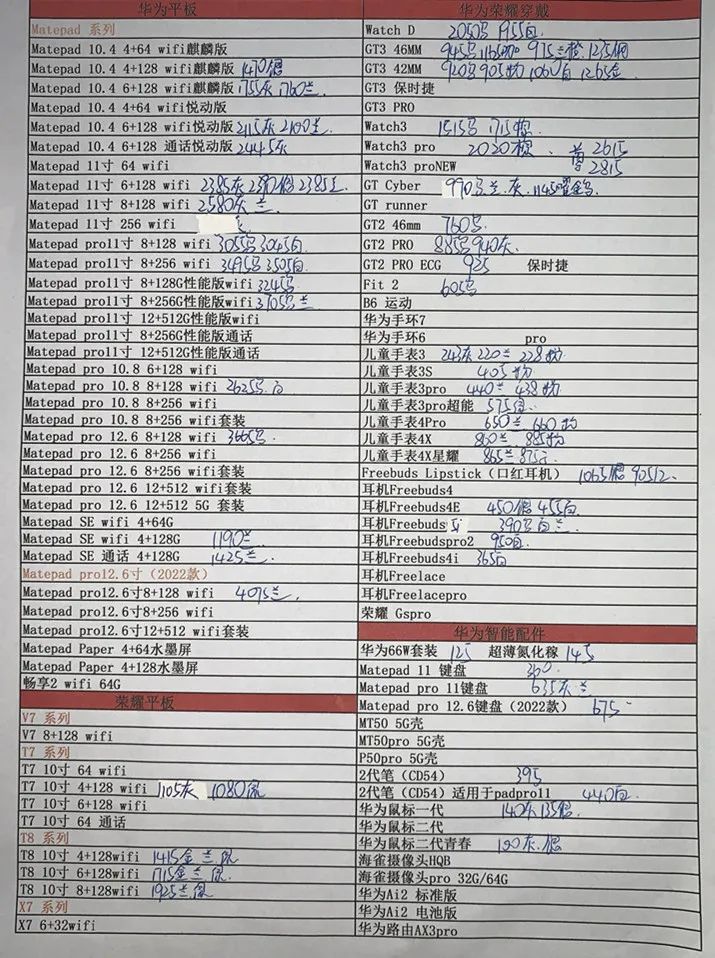 华为平板
Matepad 系列
Matepad 10.4 4+64 wifi麒麟版
Matepad 10.4 4+128 wifi麒麟版 1470银
Matepad 10.4 6+128 wifi麒麟版 1755灰 1760兰
Matepad 10.4 4+64 wifi悦动版
Matepad 10.4 6+128 wifi悦动版 2115灰 2100兰
Matepad 10.4 6+128 通话悦动版 2445灰
Matepad 11寸 64 wifi
Matepad 11寸 6+128 wifi 2385灰 2390银 2385兰
Matepad 11寸 8+128 wifi 2580灰 兰
Matepad 11寸 256 wifi
Matepad pro11寸 8+128 wifi 3055 3045白
Matepad pro11寸 8+256 wifi 3495 3505白
Matepad pro11寸 8+128G性能版wifi 3245
Matepad pro11寸 8+256G性能版wifi 3705 兰
Matepad pro11寸 12+512G性能版wifi
Matepad pro11寸 8+256G性能版通话
Matepad pro11寸 12+512G性能版通话
Matepad pro 10.8 6+128 wifi
Matepad pro 10.8 8+128 wifi 2625 白
Matepad pro 10.8 8+256 wifi
Matepad pro 10.8 8+256 wifi套装
Matepad pro 12.6 8+128 wifi 3665
Matepad pro 12.6 8+256 wifi
Matepad pro 12.6 8+256 wifi套装
Matepad pro 12.6 12+512 wifi套装
Matepad pro 12.6 12+512 5G 套装
Matepad SE wifi 4+64G
Matepad SE wifi 4+128G 1190兰
Matepad SE 通话 4+128G 1425兰
Matepad pro12.6寸（2022款）
Matepad pro12.6寸8+128 wifi 4095兰
Matepad pro12.6寸8+256 wifi
Matepad pro12.6寸12+512 wifi套装
Matepad Paper 4+64水墨屏
Matepad Paper 4+128水墨屏
畅享2 wifi 64G
荣耀平板
V7 系列
V7 8+128 wifi
T7 系列
T7 10寸 64 wifi
T7 10寸 4+128 wifi 1105灰 1080
T7 10寸 6+128 wifi
T7 10寸 64 通话
T8 系列
T8 10寸 4+128wifi 1415金 兰
T8 10寸 6+128wifi 1715金 兰
T8 10寸 8+128wifi 1925兰
X7 系列
X7 6+32wifi
华为荣耀穿戴
Watch D 2050 1955白
GT3 46MM 945 1165 975 1275钢
GT3 42MM 920 905 1060白 1265金
GT3 保时捷
GT3 PRO
Watch3 1515 1715棕
Watch3 pro 2020棕 尊2615
Watch3 proNEW 尊2815
GT Cyber 990 兰.灰.1145
GT runner
GT2 46mm 760
GT2 PRO 885 940灰
GT2 PRO ECG 925 保时捷
Fit 2 605
B6 运动
华为手环7
华为手环6 pro
儿童手表3 243灰 220兰 228粉
儿童手表3S 405粉
儿童手表3pro 440兰 438粉
儿童手表3pro超能 575
儿童手表4Pro 650兰 660粉
儿童手表4X 860兰 885粉
儿童手表4X星耀 865兰 875
Freebuds Lipstick（口红耳机） 1065银 905
耳机Freebuds4
耳机Freebuds4E 450银 455白
耳机Freebuds 5i 390 白 兰
耳机Freebudspro2 950白
耳机Freebuds4i 365白
耳机Freelace
耳机Freelacepro
荣耀 Gspro
华为智能配件
华为66W套装 125 超薄氮化稼 145
Matepad 11 键盘 360
Matepad pro 11键盘 635灰 兰
Matepad pro 12.6键盘（2022款） 675
MT50 5G壳
MT50pro 5G壳
P50pro 5G壳
2代笔（CD54） 395
2代笔（CD54）适用于padpro11 440白
华为鼠标一代 140灰 135银
华为鼠标二代
华为鼠标二代青春 100灰.银
海雀摄像头HQB
海雀摄像头pro 32G/64G
华为Ai2 标准版
华为Ai2 电池版
华为路由AX3pro